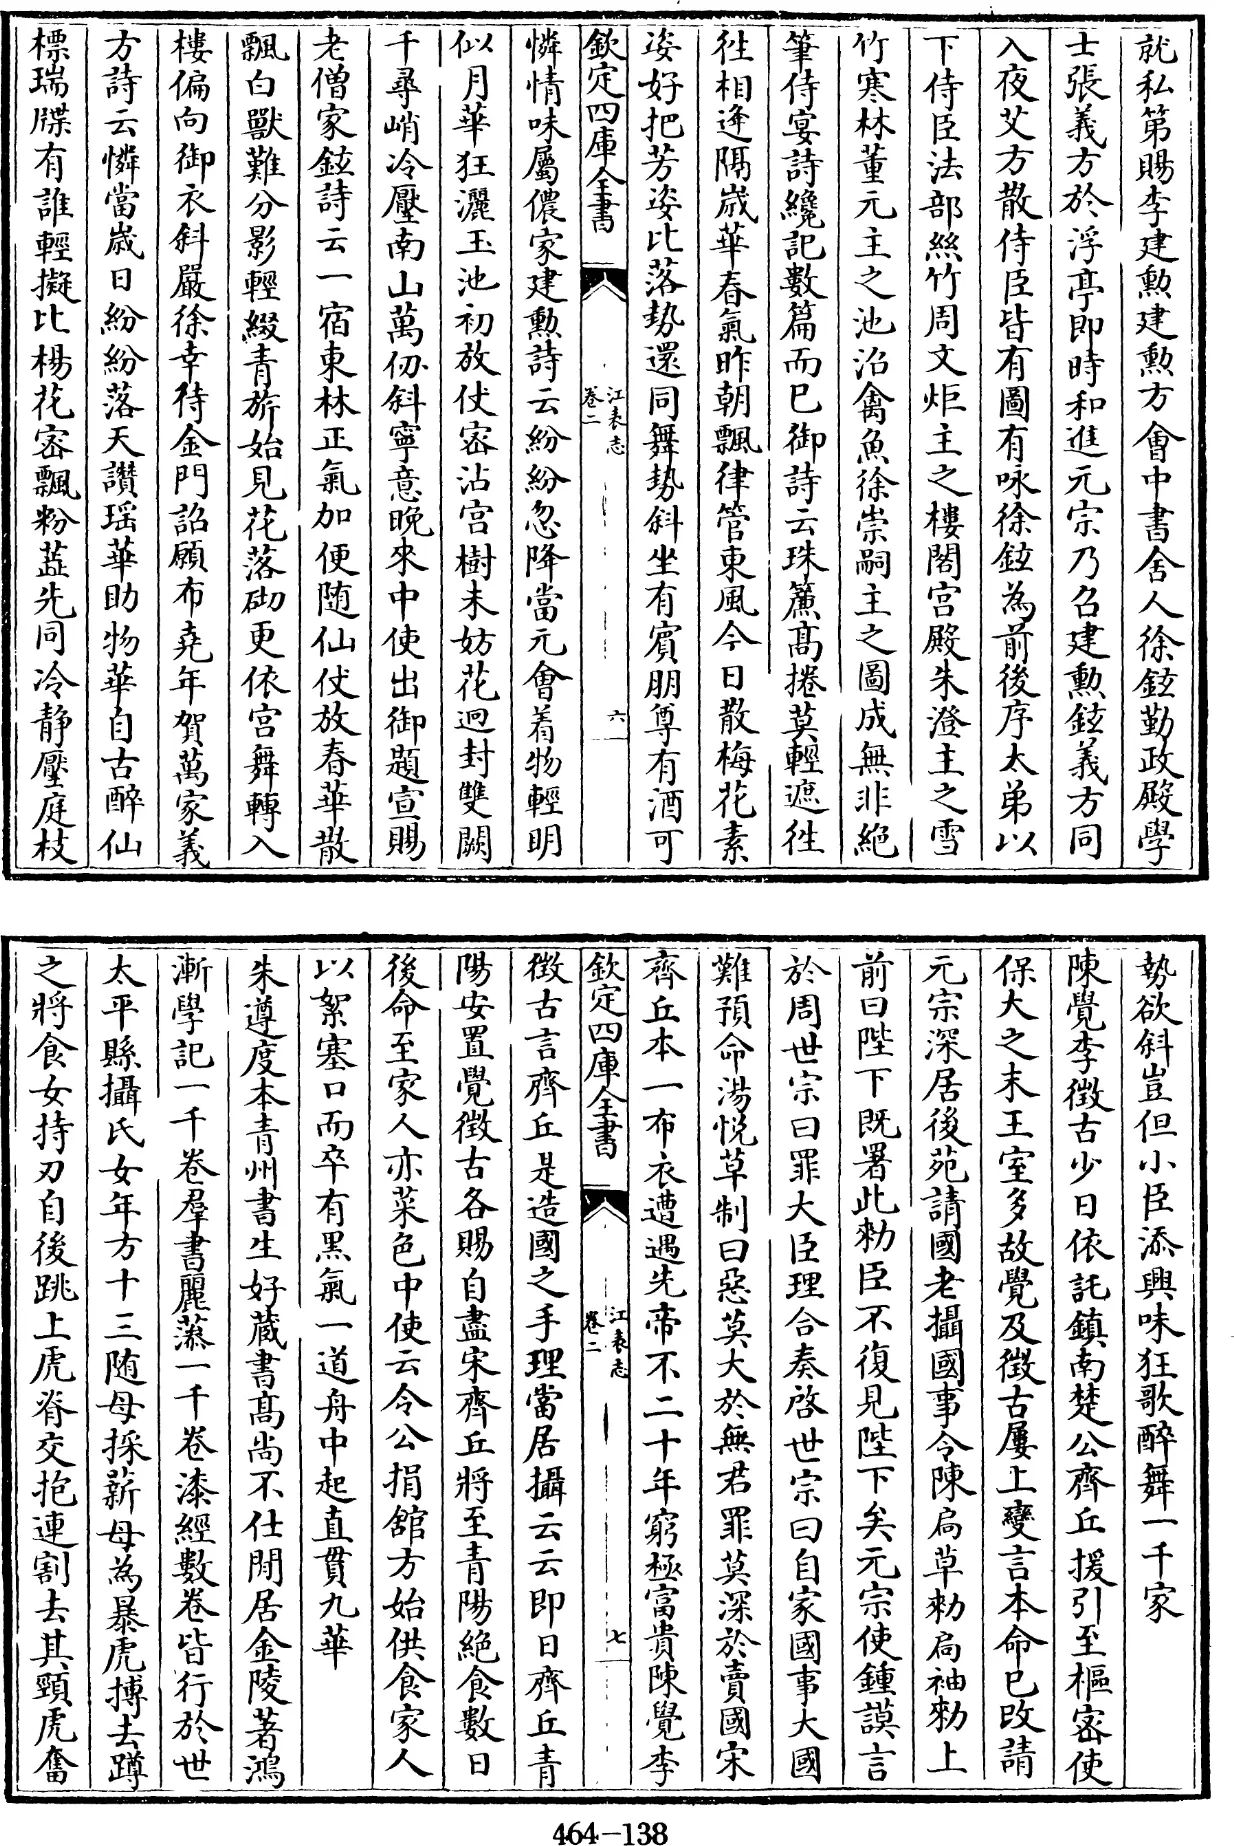 就私第賜李建勲建勲方會中書舍人徐鉉勤政殿學
士張義方於浮亭即時和進元宗乃召建勲鉉義方同
入夜艾方散侍臣皆有圖有咏徐鉉為前後序太弟以
下侍臣法部絲竹周文炬主之樓閣宫殿朱澄主之雪
竹寒林董元主之池沼禽魚徐崇嗣主之圖成無非絶
筆侍宴詩纔記數篇而已御詩云珠簾髙捲莫輕遮徃
徃相逢隔嵗華春氣昨朝飄律管東風今日散梅花素
姿好把芳姿比落勢還同舞勢斜坐有賓朋尊有酒可
欽定四庫全書
江表志
卷二
六
憐情味屬儂家建勲詩云紛紛忽降當元會着物輕明
似月華狂灑玉池初放仗宻沾宫樹未妨花迥封雙闕
千尋峭冷壓南山萬仞斜寜意晩來中使出御題宣賜
老僧家鉉詩云一宿東林正氣加便随仙仗放春華散
飄白獸難分影輕綴青旂始見花落砌更依宫舞轉入
樓偏向御衣斜嚴徐幸待金門詔願布堯年賀萬家義
方詩云憐當嵗日紛紛落天讚瑶華助物華自古醉仙
標瑞牒有誰輕擬比楊花宻飄粉蕋先同冷静壓庭枝
勢欲斜豈但小臣添興味狂歌醉舞一千家
陳覺李徴古少日依託鎮南楚公齊丘援引至樞宻使
保大之末王室多故覺及徴古屢上變言本命已改請
元宗深居後苑請國老攝國事令陳扃草勅扃袖勅上
前曰陛下既署此勅臣不復見陛下矣元宗使鍾謨言
於周世宗曰罪大臣理合奏啓世宗曰自家國事大國
難預命湯悦草制曰惡莫大於無君罪莫深於賣國宋
齊丘本一布衣遭遇先帝不二十年窮極富貴陳覺李
欽定四庫全書
江表志
卷二
七
徴古言齊丘是造國之手理當居攝云云即日齊丘青
陽安置覺徴古各賜自盡宋齊丘將至青陽絶食數日
後命至家人亦菜色中使云令公捐館方始供食家人
以絮塞口而卒有黒氣一道舟中起直貫九華
朱遵度本青州書生好藏書髙尚不仕閒居金陵著鴻
漸學記一千卷羣書麗藻一千卷漆經數卷皆行於世
太平縣攝氏女年方十三随母採薪母為暴虎搏去蹲
之將食女持刃自後跳上虎脊交抱連割去其頸虎奮
464-138